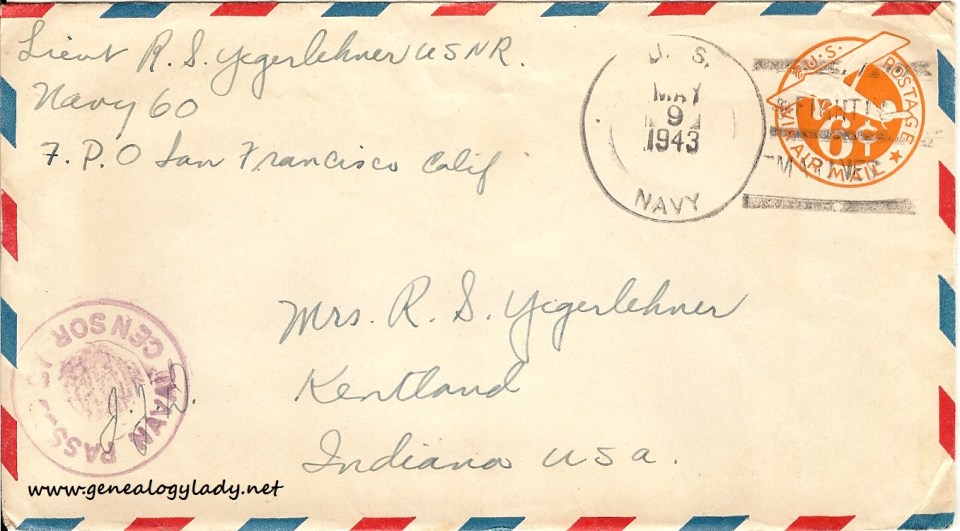 Lieut R. S. Yegerlehner USNR.
Navy 60
F. P. O San Francisco Calif
U. S.
MAY
9
1943
NAVY
U.S. POSTAGE
6¢
VIA AIR MAIL
Mrs. R. S. Yegerlehner
Kentland
Indiana USA.
PASSED BY
NAVAL CENSOR
www.genealogylady.net